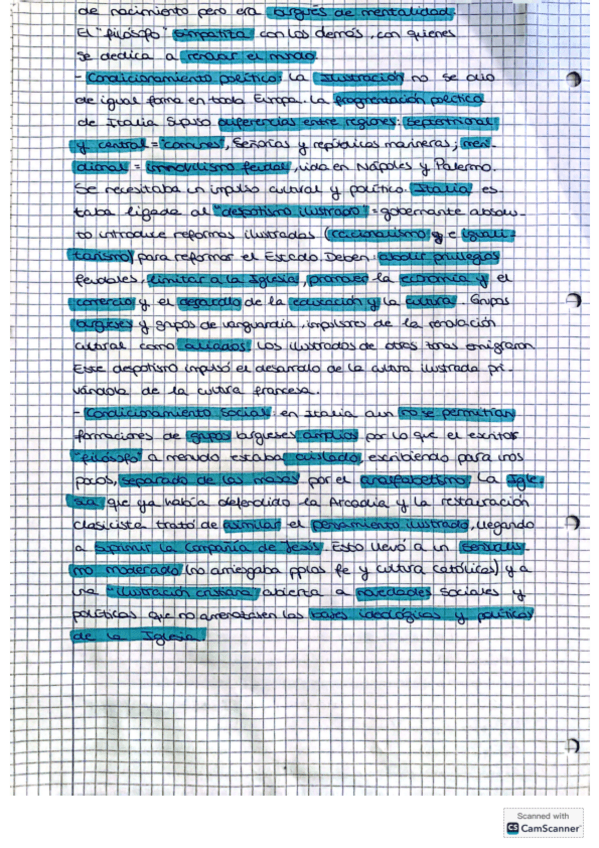 de nacimiento pero era burgués de mentalidad.
El "filósofo" simpatiza con los demás, con quienes
se dedica a renovar el mundo.
- Condicionamiento político: La Ilustración no se dio
de igual forma en toda Europa. La fragmentación política
de Italia supuso diferencias entre regiones: septentrional
y central = comunes, Señorías y repúblicas marineras; meri-
dional = inmovilismo feudal, vida en Nápoles y Palermo.
Se necesitaba un impulso cultural y político. Italia es-
taba ligada al "despotismo ilustrado" = gobernante absolu-
to introduce reformas ilustradas (racionalismo e iguali-
tarismo) para reformar el Estado. Deben: abolir privilegios
feudales, limitar a la Iglesia, promover la economía y el
comercio y el desarrollo de la educación y la cultura. Grupos
burgueses y grupos de vanguardia, impulsores de la renovación
cultural como aliados. Los ilustrados de otras zonas emigraron.
Este despotismo impulsó el desarrollo de la cultura ilustrada pri-
vándola de la cultura francesa.
- Condicionamiento social: en Italia aun no se permitían
formaciones de grupos burgueses amplios por lo que el escritor
"filósofo" a menudo estaba aislado, escribiendo para unos
pocos, separado de las masas por el analfabetismo. La Igle-
sia que ya había defendido la Arcadia y la restauración
clasicista trató de asimilar el pensamiento ilustrado, llegando
a suprimir la Compañía de Jesús. Esto llevó a un
mo moderado (no arriesgaba pplos fe y cultura católicas) y a
una "ilustración cristiana" abierta a novedades sociales y
políticas que no amenazasen las bases ideológicas y políticas
de la Iglesia.
Scanned with
CS CamScanner